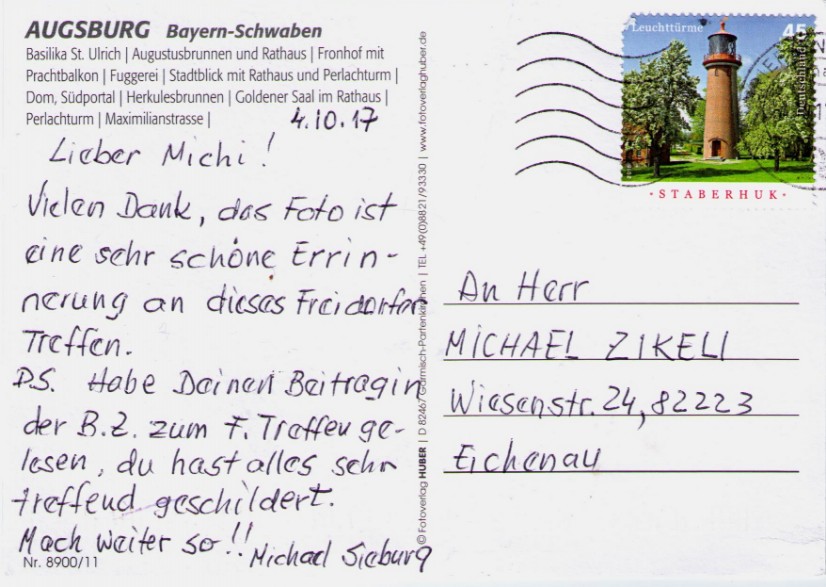 AUGSBURG Bayern-Schwaben
Basilika St. Ulrich | Augustusbrunnen und Rathaus | Fronhof mit
Prachtbalkon | Fuggerei | Stadtblick mit Rathaus und Perlachturm |
Dom, Südportal | Herkulesbrunnen | Goldener Saal im Rathaus |
Perlachturm | Maximilianstrasse |
4.10.17
Lieber Michi!
Vielen Dank, das Foto ist
eine sehr schöne Errin-
nerung an dieses Freidorfer
Treffen.
P.S. Habe Deinen Beitrag in
der B.Z. zum F. Treffen ge-
lesen, du hast alles sehr
treffend geschildert.
Mach weiter so!!
Michael Sieburg
Nr. 8900/11
© Fotoverlag HUBER | D 82467 Garmisch-Partenkirchen | TEL +49(0)8821/93330 | www.fotoverlaghuber.de
Leuchttürme
45
Deutschland
· STABERHUK ·
An Herr
MICHAEL ZIKELI
Wiesenstr. 24, 82223
Eichenau